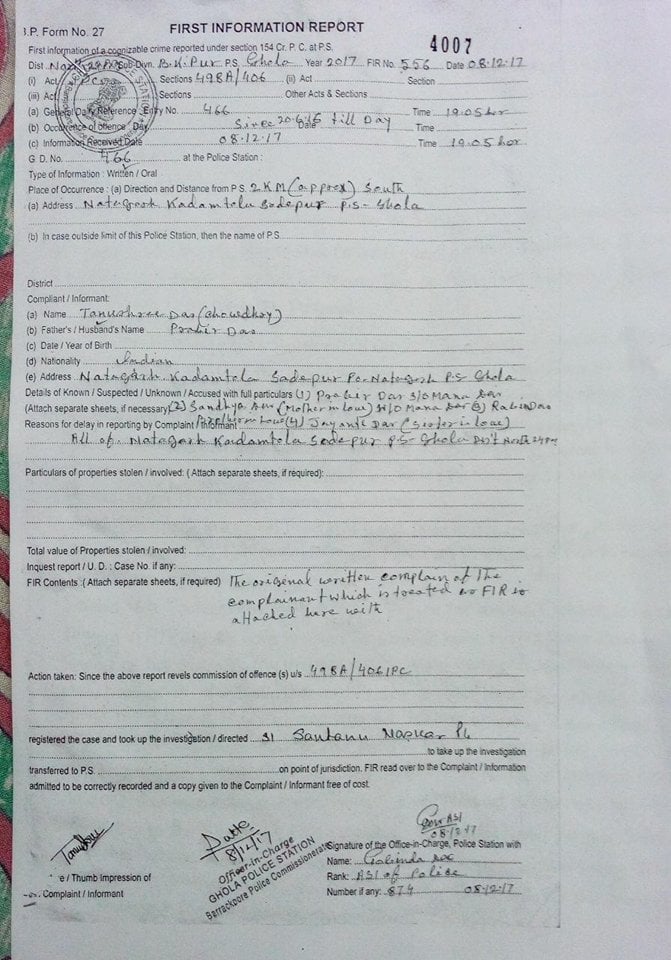 I.P. Form No. 27
FIRST INFORMATION REPORT
4007
First information of a cognizable crime reported under section 154 Cr. P. C. at P.S.
Dist North 24 Pgs Sub-Divn. B.K.Pur P.S. Ghola Year 2017 FIR No. 556 Date 08.12.17
(i) Act IPC Sections 498A/406 (ii) Act Section
(iii) Act Sections Other Acts & Sections
(a) General Daily Reference : Entry No. 466 Time 19.05 hor
(b) Occurence of offence : Day Since 20.6.15 Date till Day Time
(c) Information Received Date 08.12.17 Time 19.05 hor
G. D. No. 466 at the Police Station :
Type of Information : Written / Oral
Place of Occurrence : (a) Direction and Distance from P.S. 2 KM (approx) South
(a) Address Natagarh Kadamtola Sodepur P.S- Ghola
(b) In case outside limit of this Police Station, then the name of P.S.
District
Compliant / Informant:
(a) Name Tanushree Das (Chowdhry)
(b) Father's / Husband's Name Prabir Das
(c) Date / Year of Birth
(d) Nationality Indian
(e) Address Natagarh Kadamtola Sodepur Po-Natagarh P.S Ghola
Details of Known / Suspected / Unknown / Accused with full particulars (1) Prabir Das S/O Mana Das
(Attach separate sheets, if necessary) (2) Sandhya Das (Mother in low) W/O Mana Das (3) Rabin Das
Reasons for delay in reporting by Complaint / Informant (Brother in low) (4) Jayanti Das (Sister in low)
All of Natagarh Kadamtola Sodepur PS- Ghola Dist North 24 Pgs
Particulars of properties stolen / involved: ( Attach separate sheets, if required):
Total value of Properties stolen / involved:
Inquest report / U. D. : Case No. if any:
FIR Contents :( Attach separate sheets, if required) The original written complain of the
complainant which is treated as FIR is
attached here with
Action taken: Since the above report revels commission of offence (s) u/s 498A/406 IPC
registered the case and took up the investigation / directed SI Santanu Naskar
to take up the investigation
transferred to P.S. on point of jurisdiction. FIR read over to the Complaint / Information
admitted to be correctly recorded and a copy given to the Complaint / Informant free of cost.
8/12/17
Officer-in-Charge
GHOLA POLICE STATION
Barrackpore Police Commissionerate
ASI
08.12.17
Signature of the Office-in-Charge, Police Station with
Name: Gobinda Das
Rank: ASI of Police
Number if any: 874 08.12.17
e / Thumb Impression of
Complaint / Informant